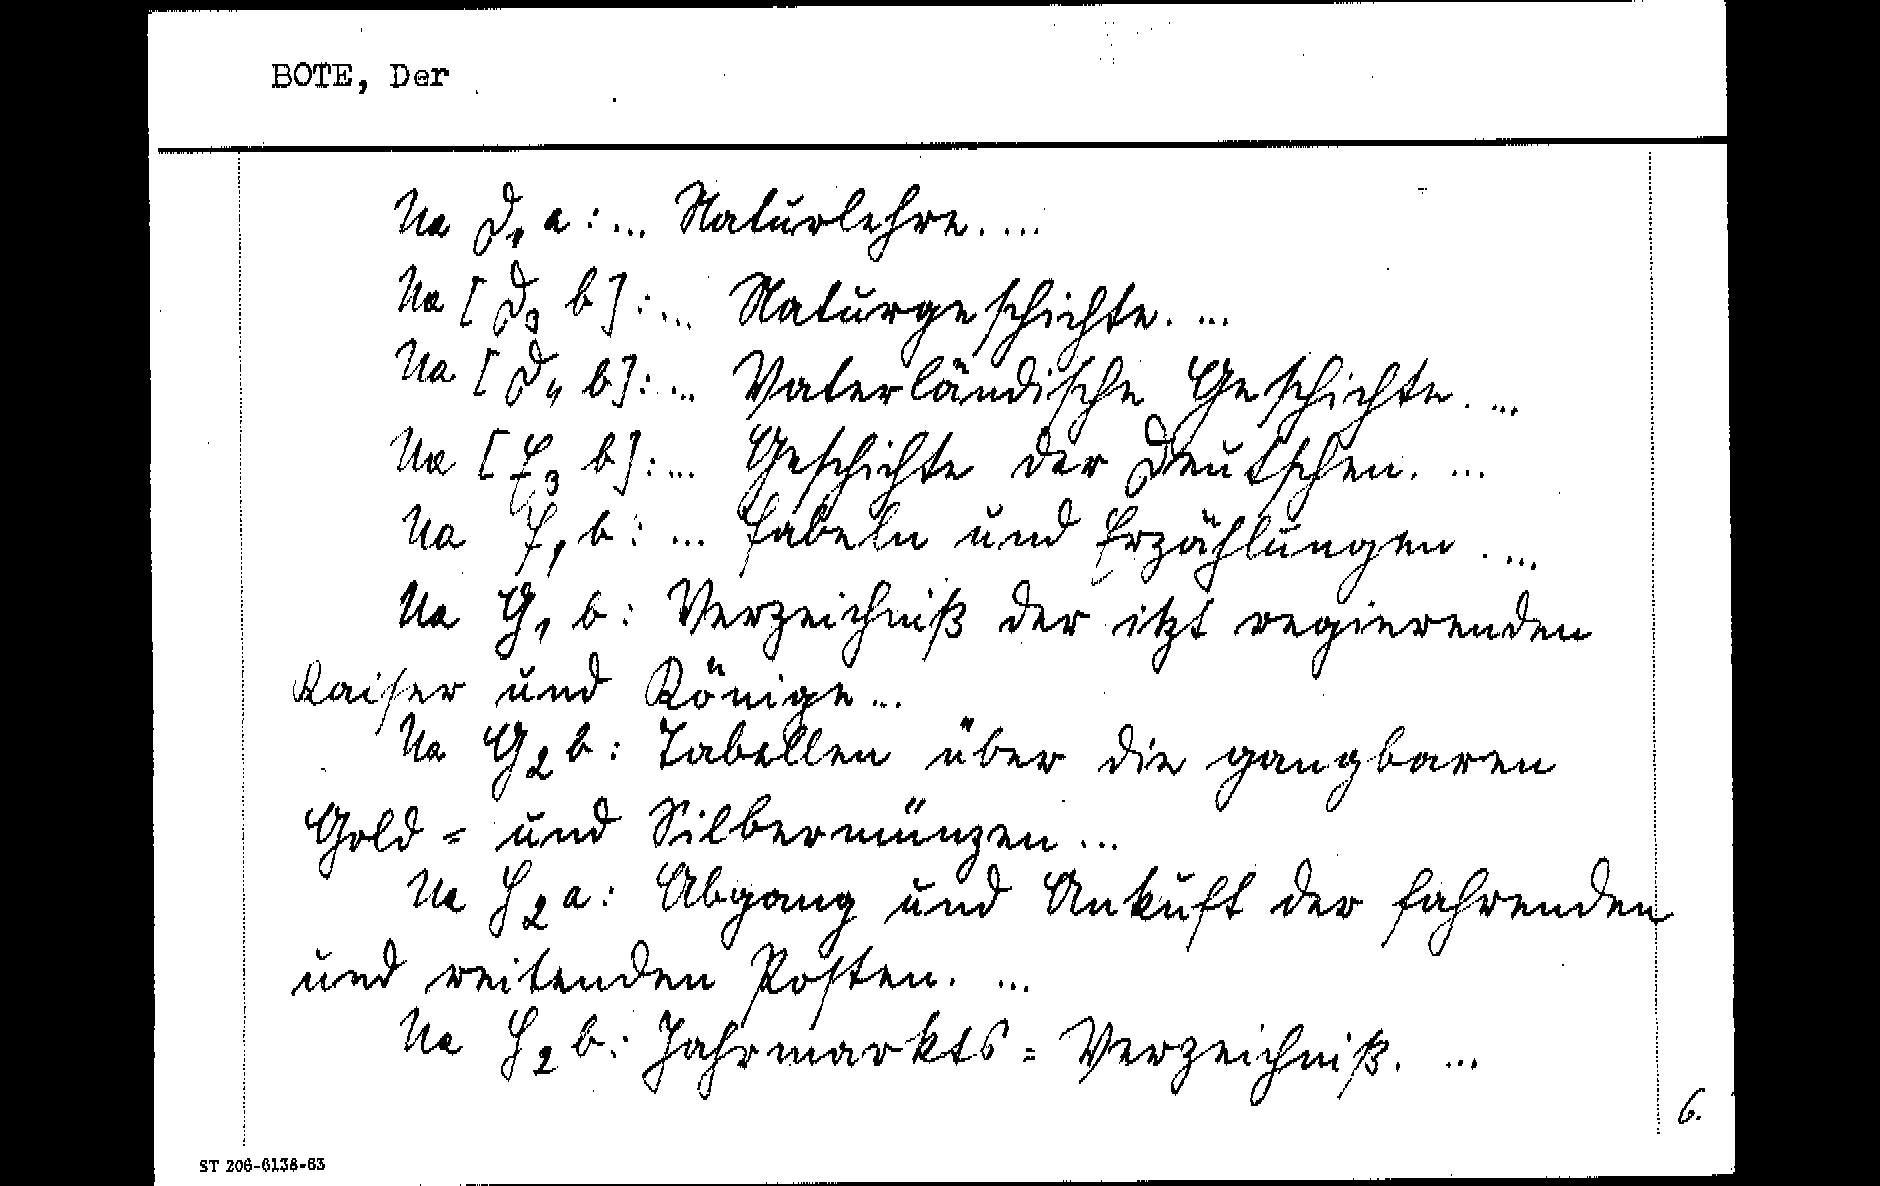 BOTE, Der
Ua D₁ a: ... Naturlehre. ...
Ua [D₃ b]: ... Naturgeschichte. ...
Ua [D₄ b]: ... Vaterländische Geschichte. ...
Ua [E₃ b]: ... Geschichte der Deutschen. ...
Ua F₁ b: ... Fabeln und Erzählungen. ...
Ua G₁ b: Verzeichniß der itzt regierenden
Kaiser und Könige ...
Ua G₂ b: Tabellen über die gangbaren
Gold = und Silbermünzen ...
Ua H₂ a: Abgang und Ankuft der fahrenden
und reitenden Posten. ...
Ua H₂ b: Jahrmarkts = Verzeichniß. ...
6.
ST 206-6138-63